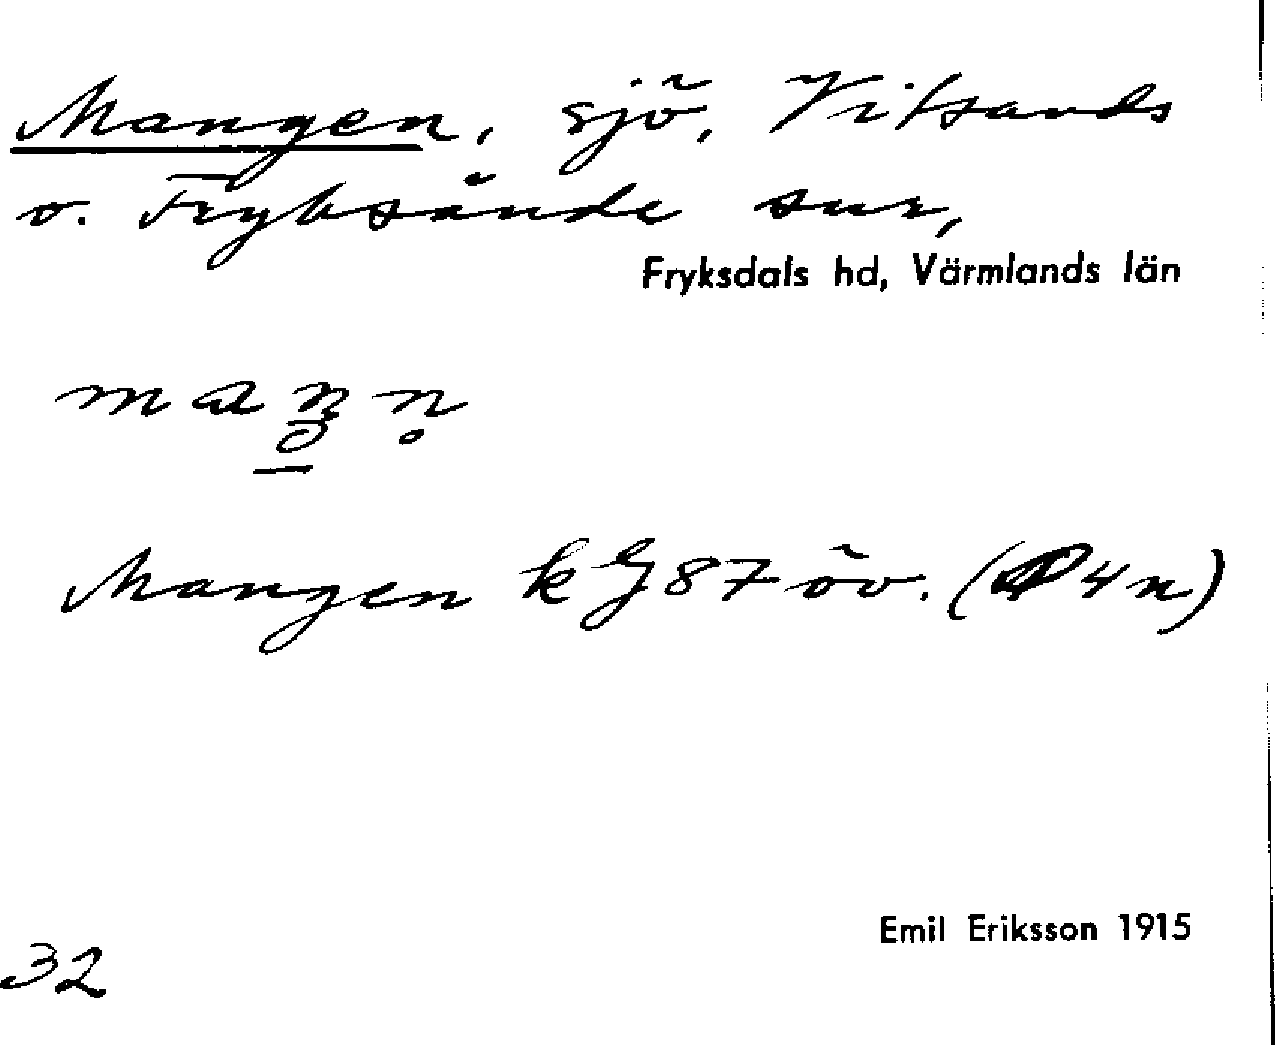 Mangen, sjö, Vitsands
o. Fryksände snr,
Fryksdals hd, Värmlands län
Mangen k GJ 87 öv. (4n)
Emil Eriksson 1915
32